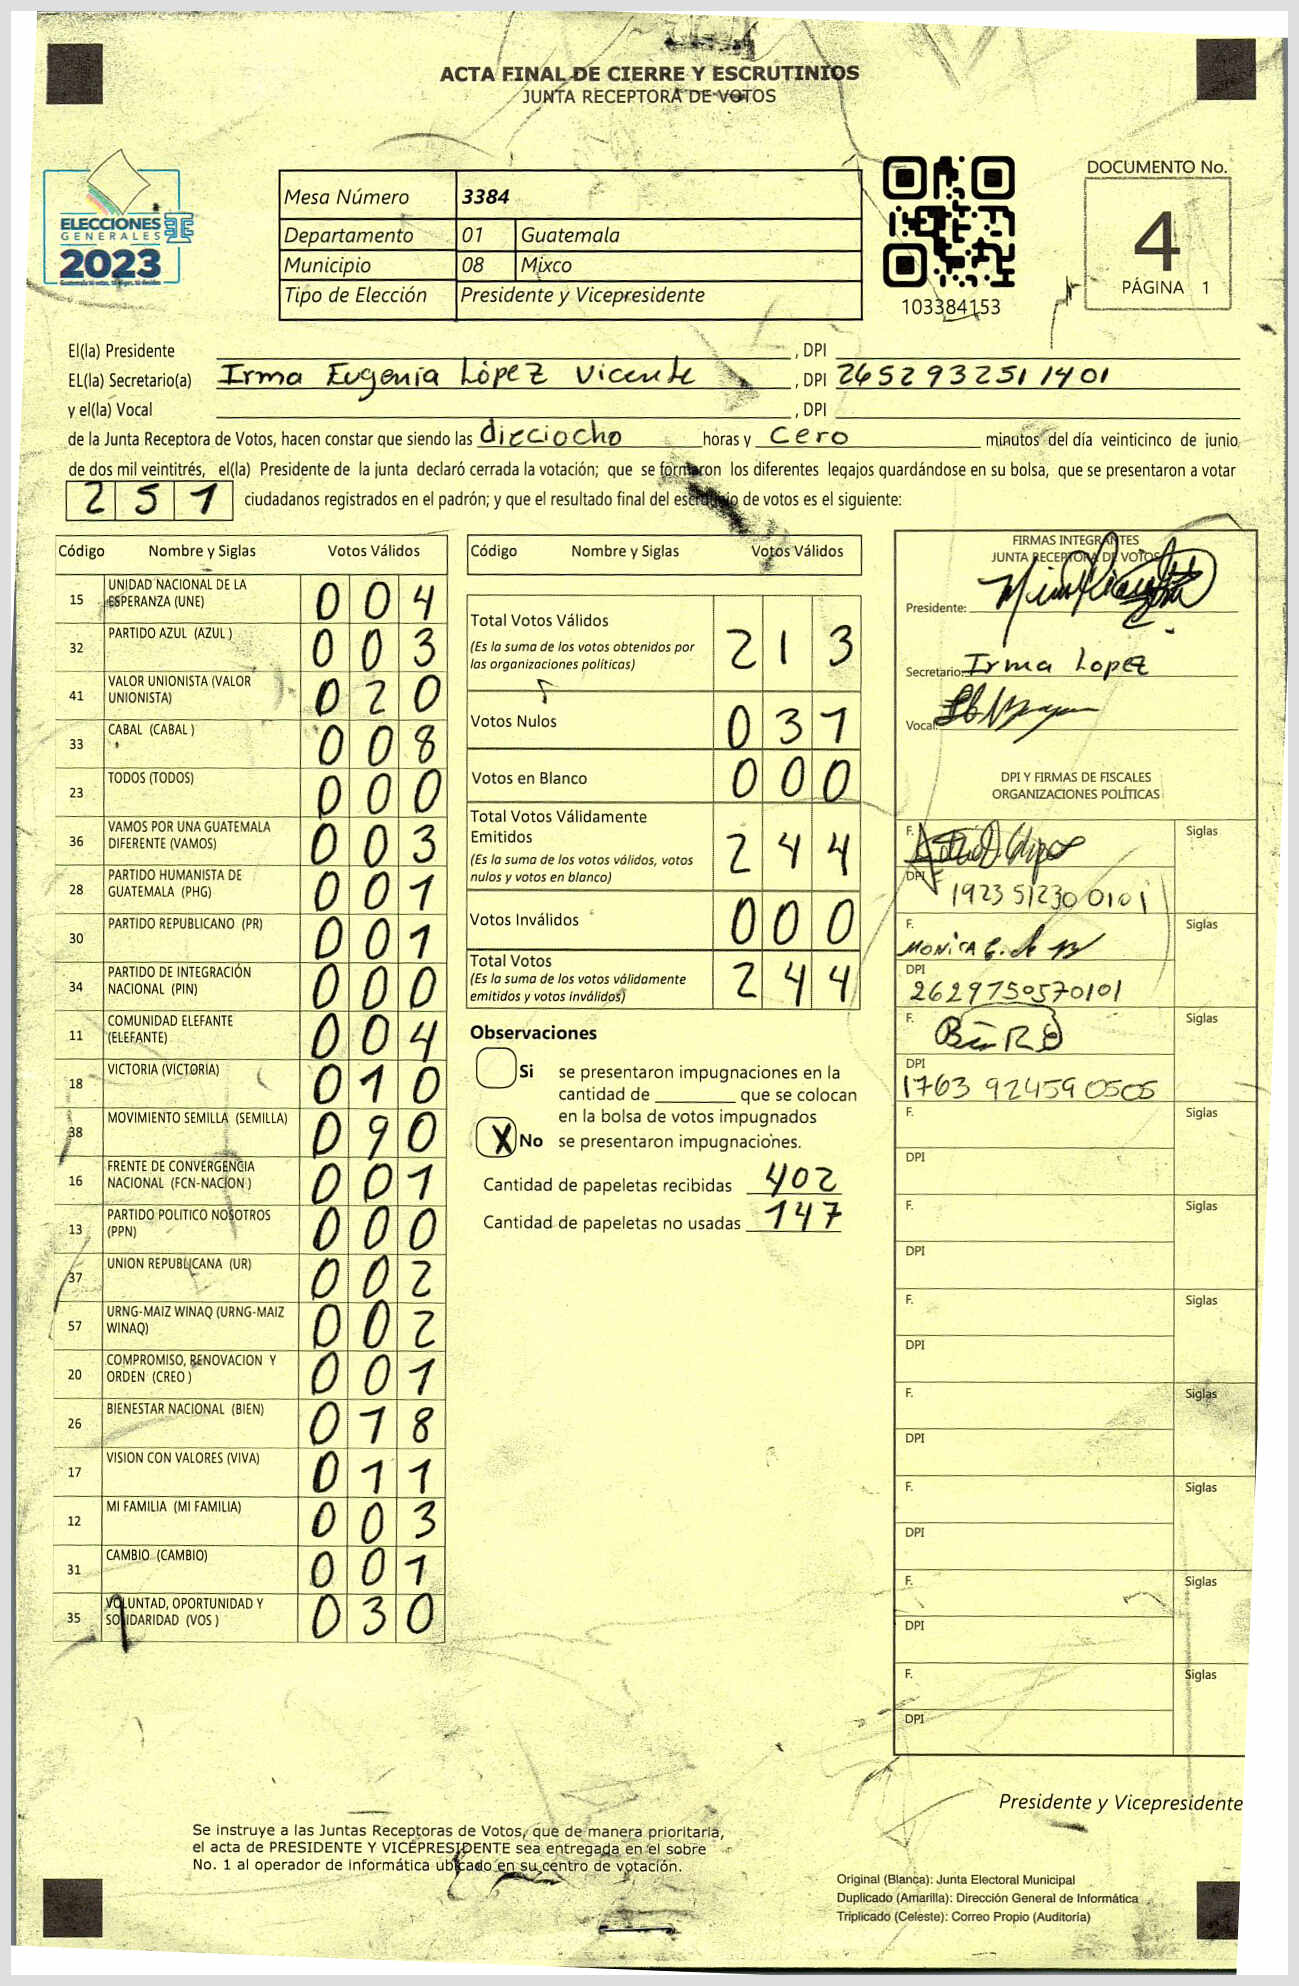 ACTA FINAL DE CIERRE Y ESCRUTINIOS
JUNTA RECEPTORA DE VOTOS
ELECCIONES
GENERALES
2023
Mesa Número 3384
Departamento 01 Guatemala
Municipio 08 Mixco
Tipo de Elección Presidente y Vicepresidente
103384153
DOCUMENTO No.
4
PÁGINA 1
El(la) Presidente , DPI
EL(la) Secretario(a) Irma Eugenia López Vicente , DPI 2652932511401
y el(la) Vocal , DPI
de la Junta Receptora de Votos, hacen constar que siendo las dieciocho horas y cero minutos del día veinticinco de junio
de dos mil veintitrés, el(la) Presidente de la junta declaró cerrada la votación; que se formaron los diferentes legajos guardándose en su bolsa, que se presentaron a votar
251 ciudadanos registrados en el padrón; y que el resultado final del escrutinio de votos es el siguiente:
Código Nombre y Siglas Votos Válidos
15 UNIDAD NACIONAL DE LA ESPERANZA (UNE) 004
32 PARTIDO AZUL (AZUL ) 003
41 VALOR UNIONISTA (VALOR UNIONISTA) 020
33 CABAL (CABAL ) 008
23 TODOS (TODOS) 000
36 VAMOS POR UNA GUATEMALA DIFERENTE (VAMOS) 003
28 PARTIDO HUMANISTA DE GUATEMALA (PHG) 001
30 PARTIDO REPUBLICANO (PR) 001
34 PARTIDO DE INTEGRACIÓN NACIONAL (PIN) 000
11 COMUNIDAD ELEFANTE (ELEFANTE) 004
18 VICTORIA (VICTORIA) 010
38 MOVIMIENTO SEMILLA (SEMILLA) 090
16 FRENTE DE CONVERGENCIA NACIONAL (FCN-NACION ) 001
13 PARTIDO POLITICO NOSOTROS (PPN) 000
37 UNION REPUBLICANA (UR) 002
57 URNG-MAIZ WINAQ (URNG-MAIZ WINAQ) 002
20 COMPROMISO, RENOVACION Y ORDEN (CREO ) 001
26 BIENESTAR NACIONAL (BIEN) 018
17 VISION CON VALORES (VIVA) 011
12 MI FAMILIA (MI FAMILIA) 003
31 CAMBIO (CAMBIO) 001
35 VOLUNTAD, OPORTUNIDAD Y SOLIDARIDAD (VOS ) 030
Código Nombre y Siglas Votos Válidos
Total Votos Válidos 213
(Es la suma de los votos obtenidos por
las organizaciones políticas)
Votos Nulos 031
Votos en Blanco 000
Total Votos Válidamente
Emitidos 244
(Es la suma de los votos válidos, votos
nulos y votos en blanco)
Votos Inválidos 000
Total Votos 244
(Es la suma de los votos válidamente
emitidos y votos inválidos)
Observaciones
Si se presentaron impugnaciones en la
cantidad de ________ que se colocan
en la bolsa de votos impugnados
X No se presentaron impugnaciones.
Cantidad de papeletas recibidas 402
Cantidad de papeletas no usadas 147
FIRMAS INTEGRANTES
JUNTA RECEPTORA DE VOTOS
Presidente:
Secretario: Irma Lopez
Vocal:
DPI Y FIRMAS DE FISCALES
ORGANIZACIONES POLÍTICAS
F. Siglas
DPI 1923 51230 0101
F. MONICA Siglas
DPI
2629750570101
F. Siglas
DPI
1763 92459 0505
F. Siglas
DPI
F. Siglas
DPI
F. Siglas
DPI
F. Siglas
DPI
F. Siglas
DPI
F. Siglas
DPI
F. Siglas
DPI
Presidente y Vicepresidente
Se instruye a las Juntas Receptoras de Votos, que de manera prioritaria,
el acta de PRESIDENTE Y VICEPRESIDENTE sea entregada en el sobre
No. 1 al operador de informática ubicado en su centro de votación.
Original (Blanca): Junta Electoral Municipal
Duplicado (Amarilla): Dirección General de Informática
Triplicado (Celeste): Correo Propio (Auditoría)